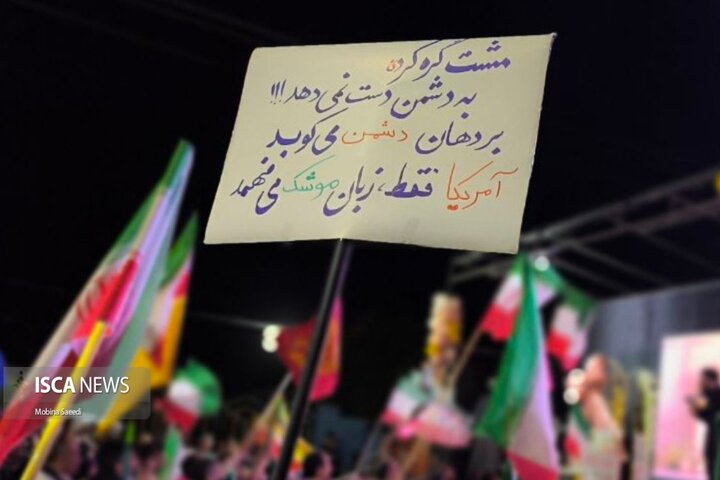 مشت گره کرده
به دشمن دست نمی دهد!!!
بر دهان دشمن می کوبد
آمریکا فقط، زبان موشک می فهمد
ISCA NEWS
Mobina Saeedi